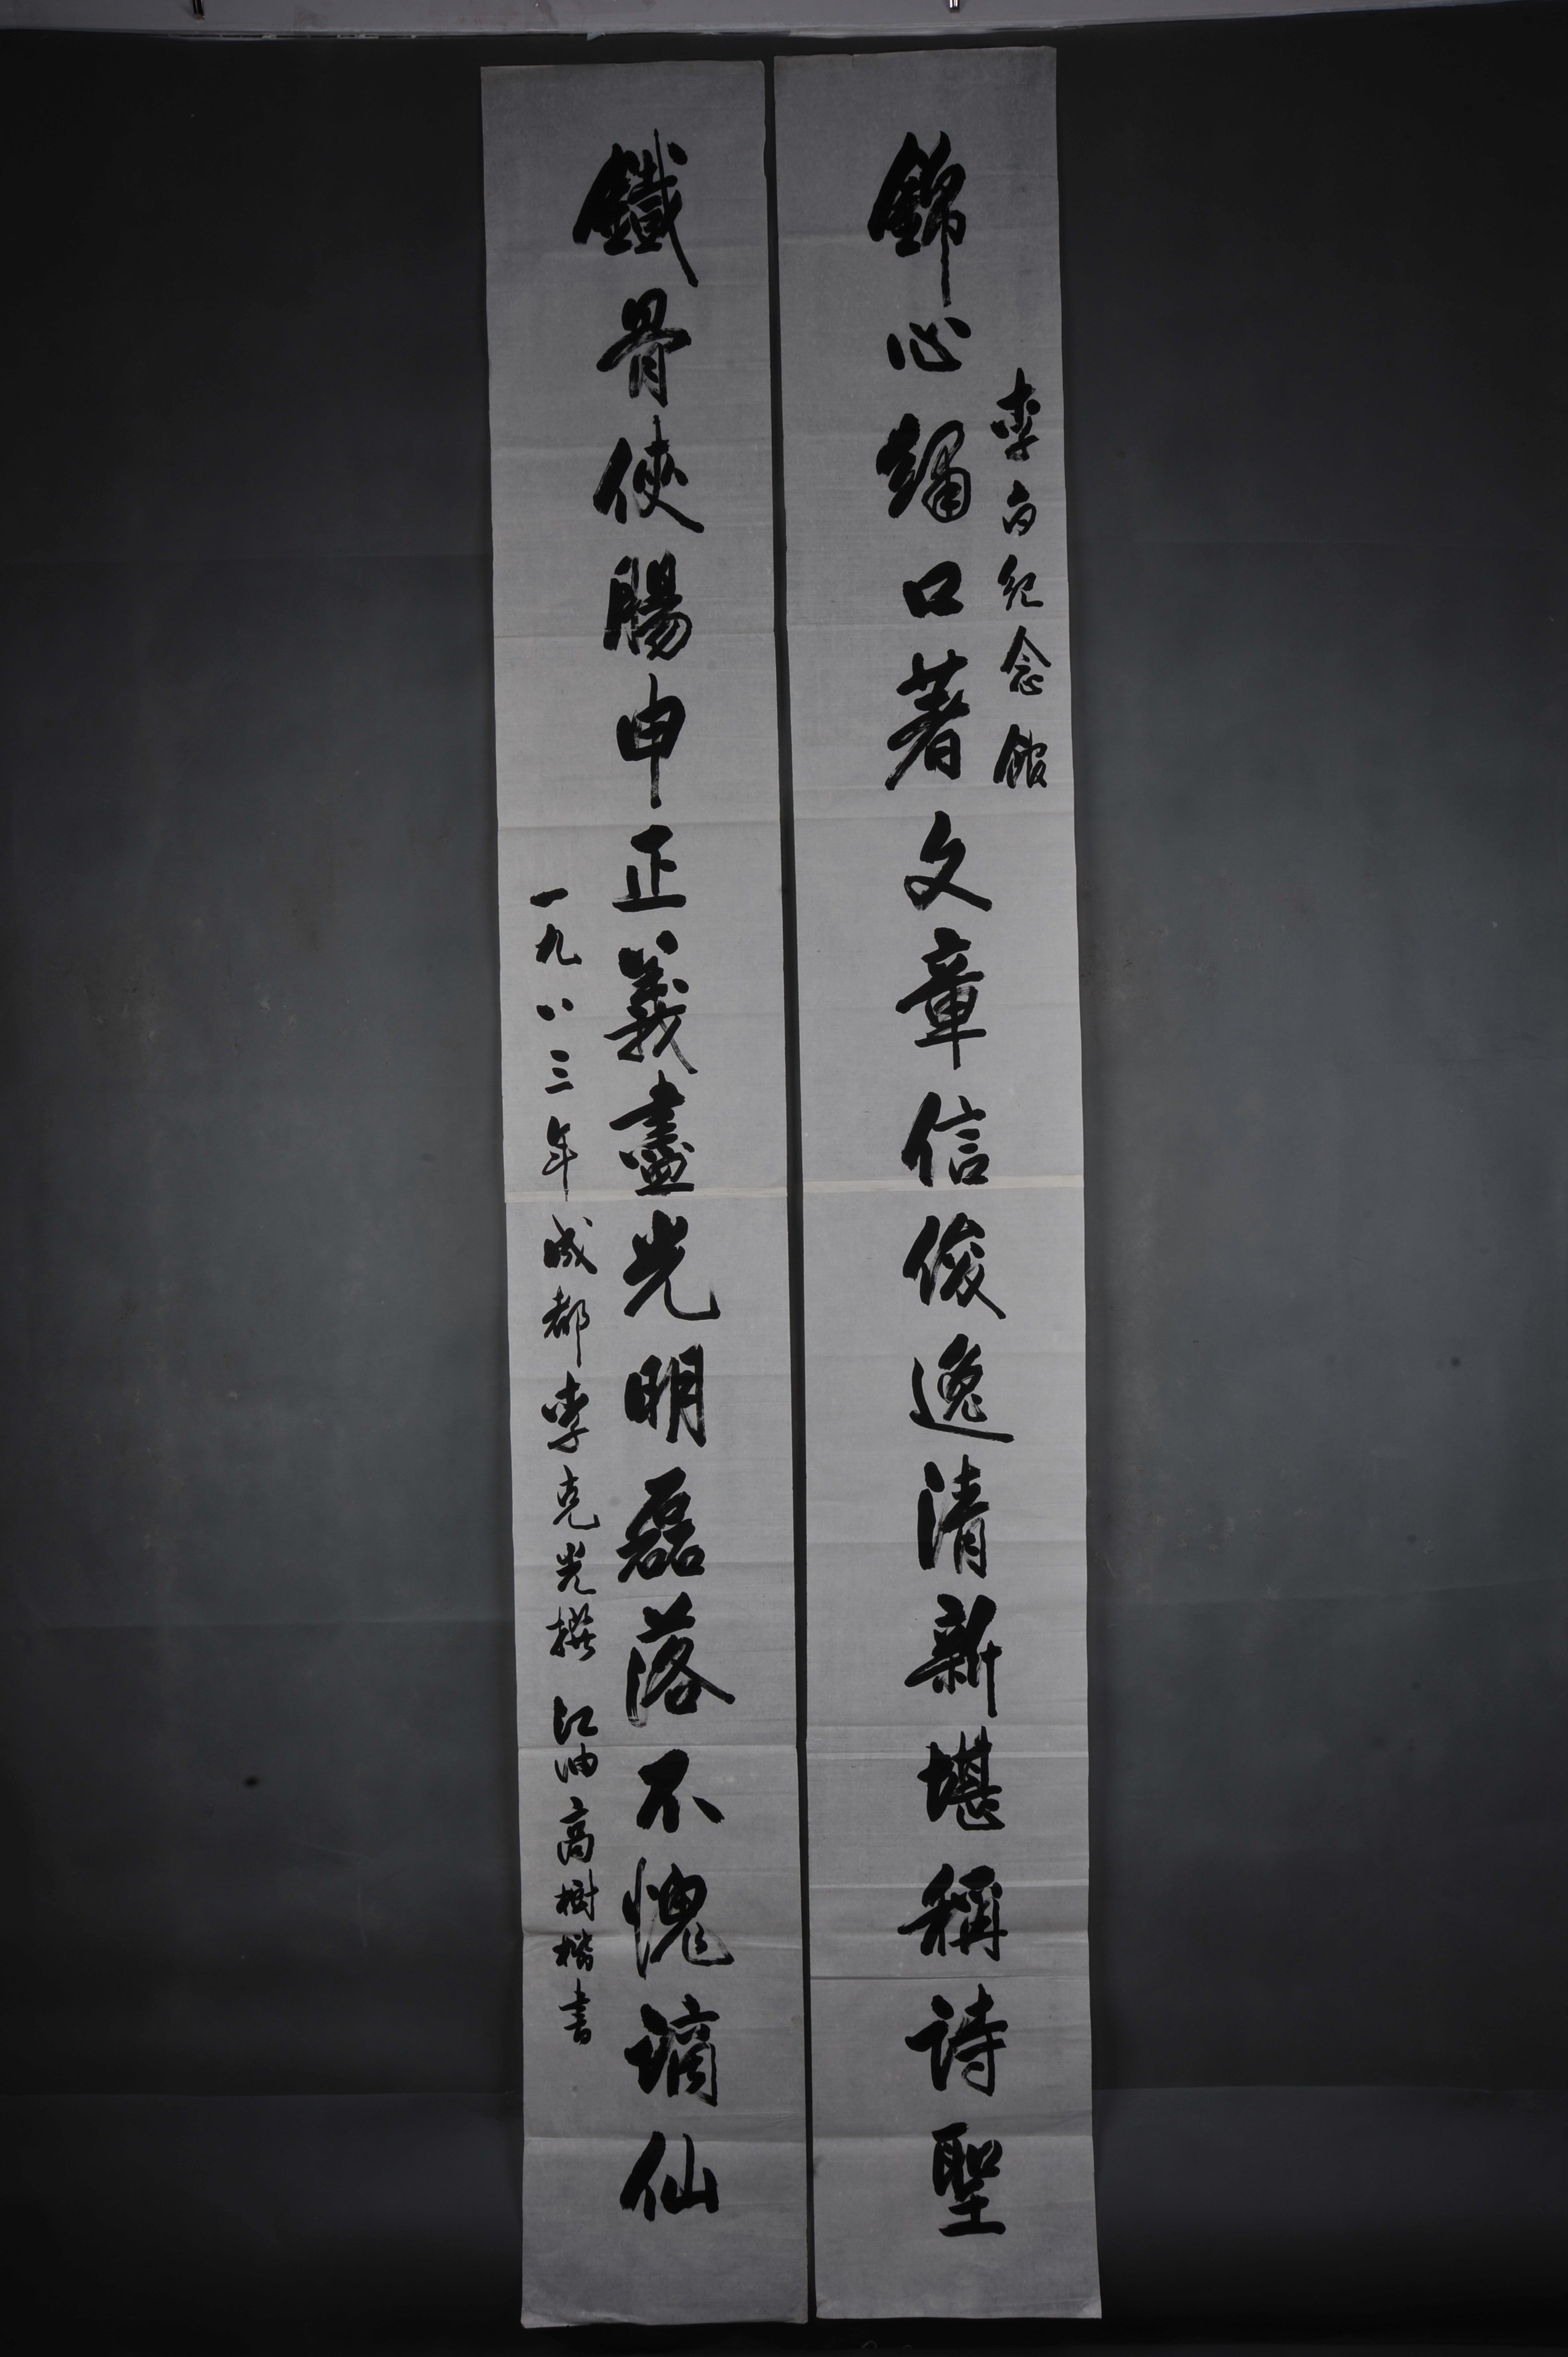 李白纪念馆
錦心繡口著文章信俊逸清新堪稱诗聖
鐵骨俠腸申正義盡光明磊落不愧謫仙
一九八三年成都李克光撰 江油高樹楷書